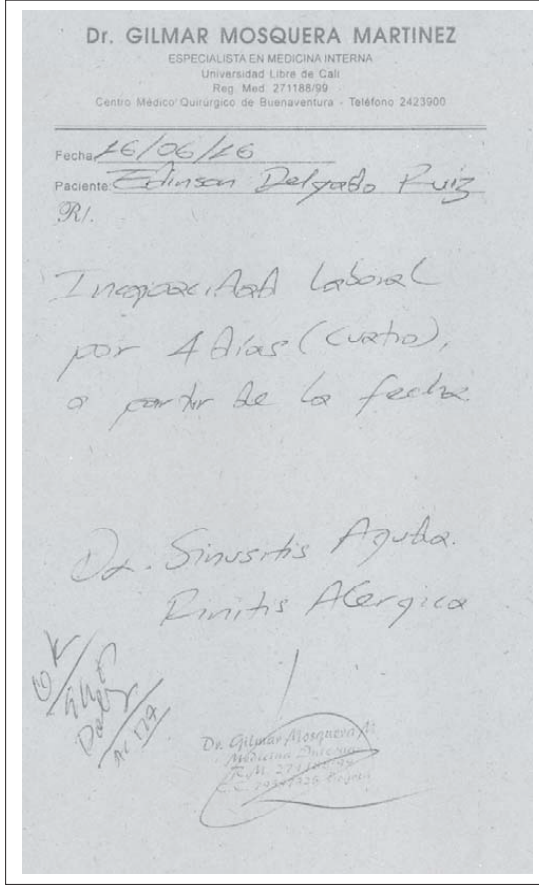 Dr. GILMAR MOSQUERA MARTINEZ
ESPECIALISTA EN MEDICINA INTERNA
Universidad Libre de Cali
Reg. Med. 271188/99
Centro Médico Quirúrgico de Buenaventura - Teléfono 2423900
Fecha 16/06/16
Paciente: Edinson Delgado Ruiz
R/.
Incapacidad Laboral
por 4 dias (cuatro),
a partir de la fecha
Dx. Sinusitis Aguda.
Rinitis Alergica
OK
Dr. Gilmar Mosquera M.
Medicina Interna
R.M. 271188/99
C.C. Bogotá